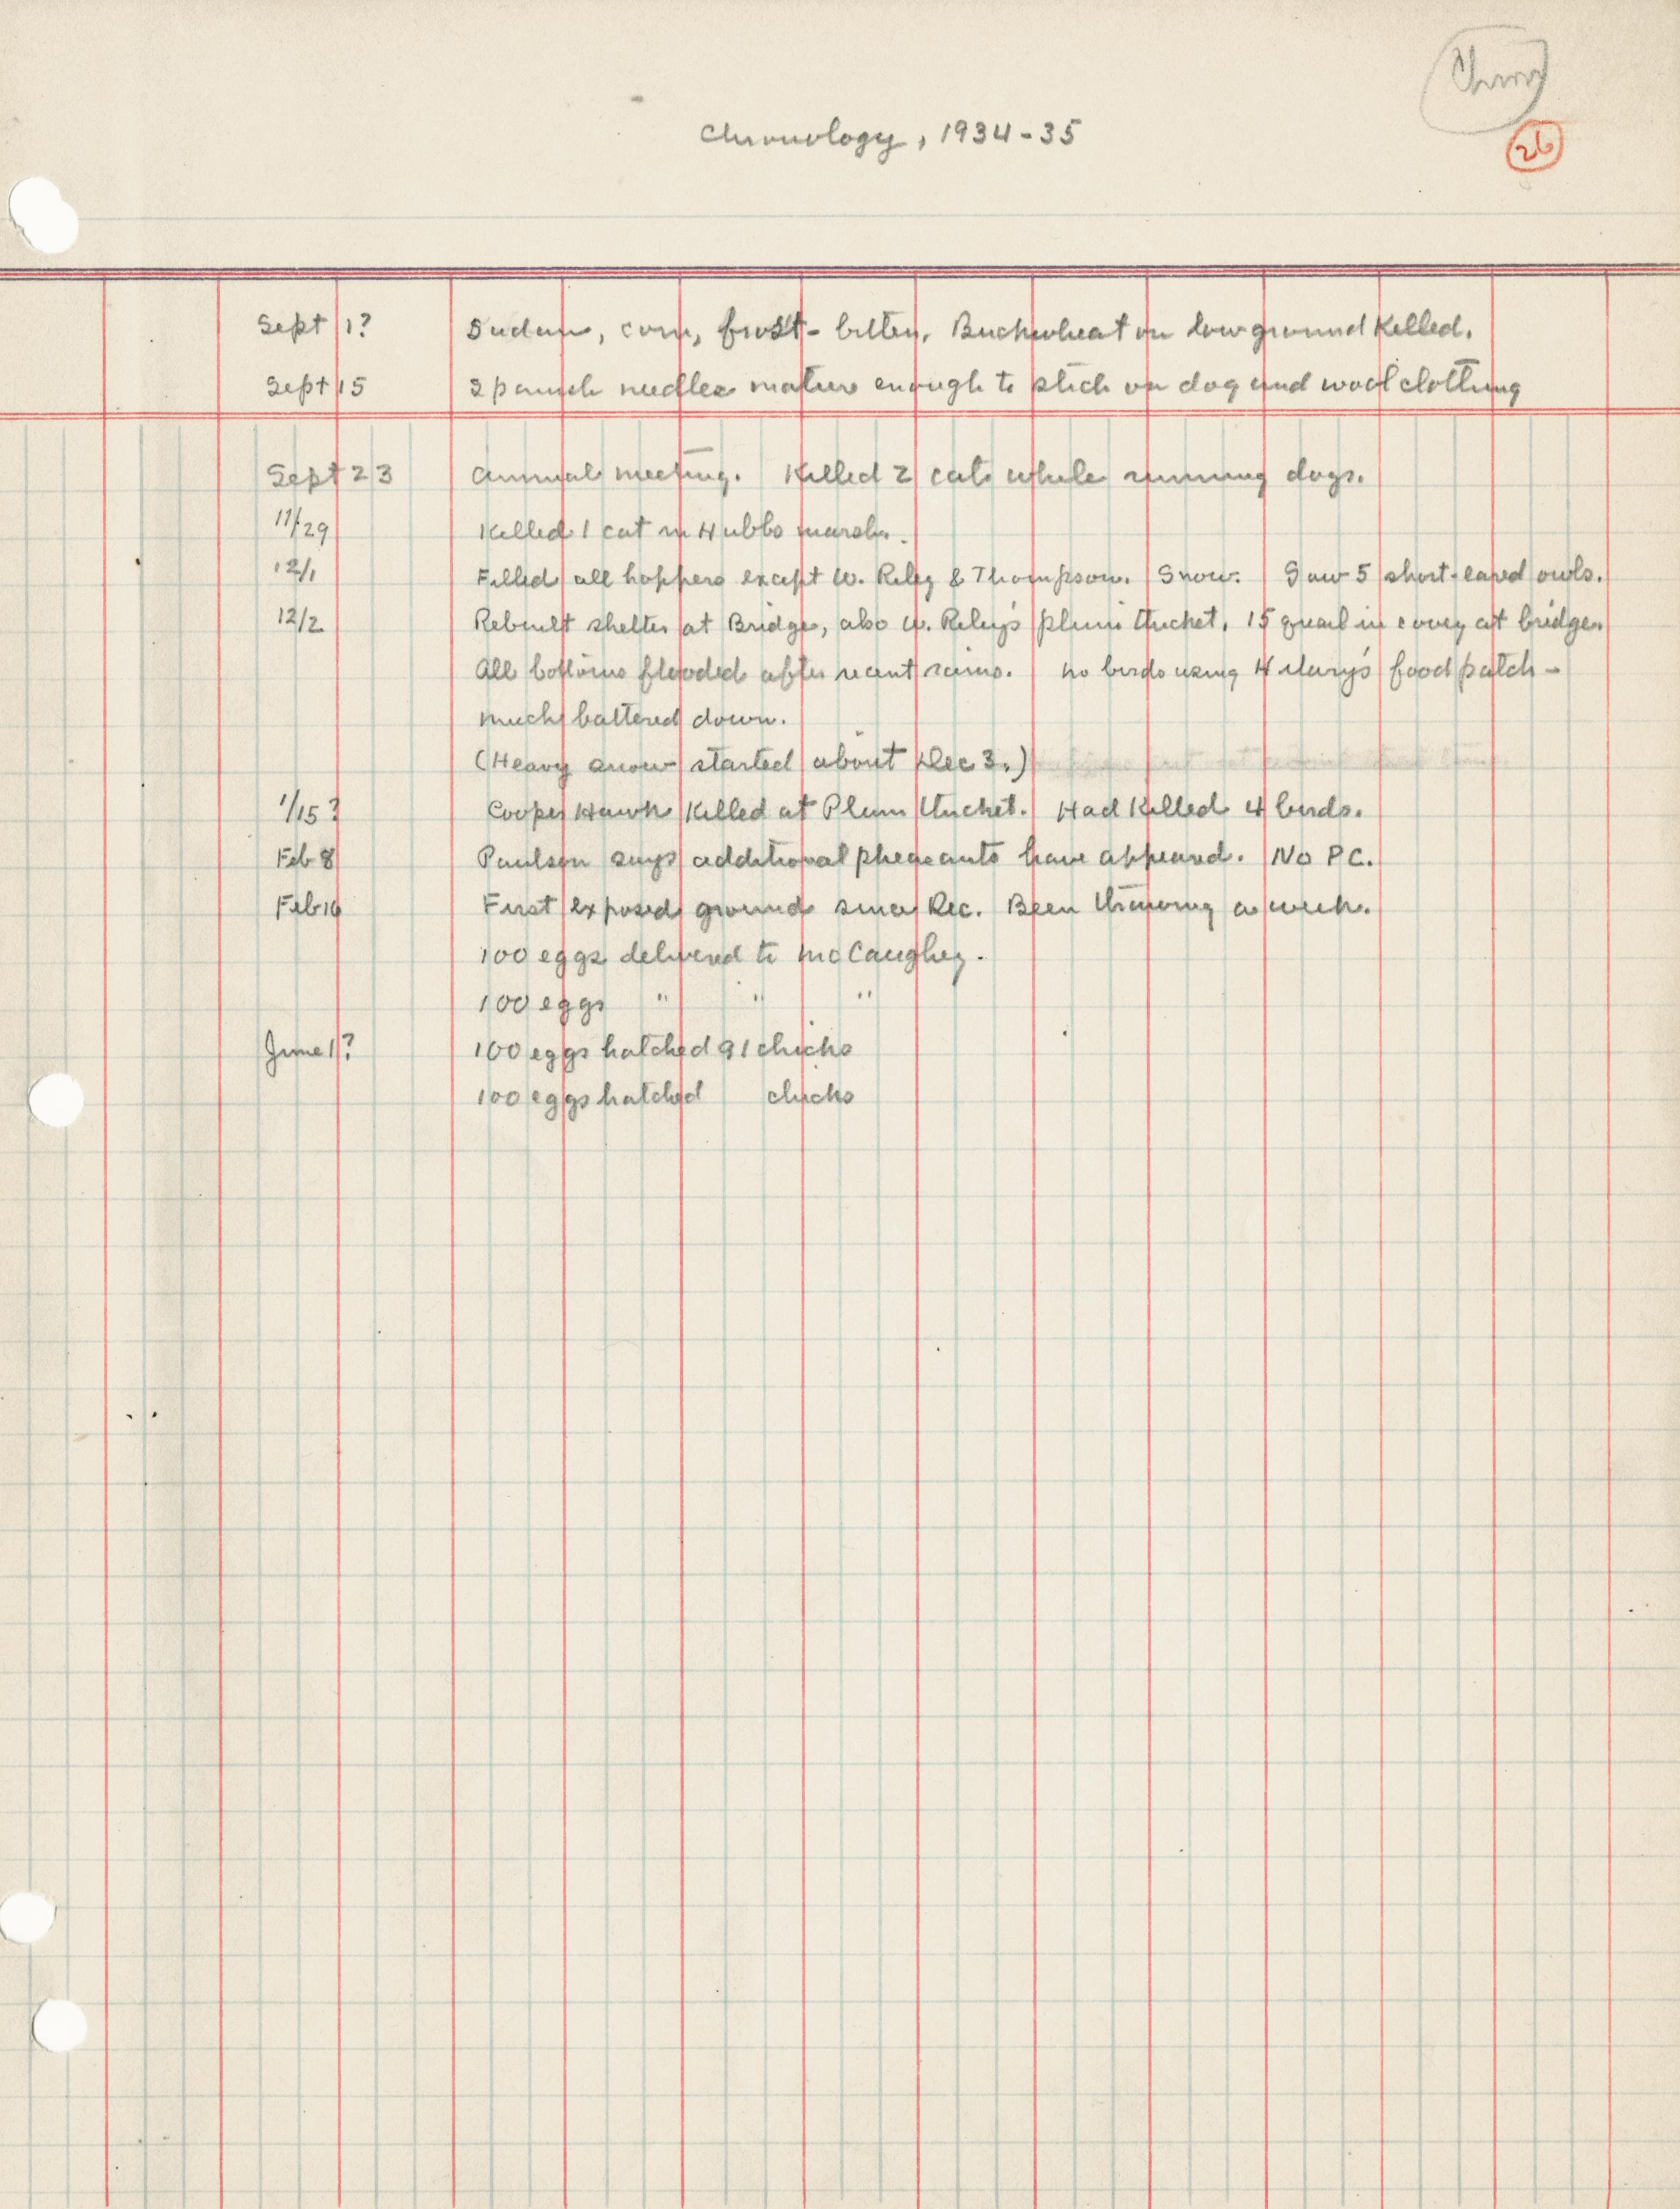 Chron
26
Chronology, 1934-35
Sept 1? Sudan, corn, frost-bitten. Buckwheat on low ground killed.
Sept 15 Spanish needles mature enough to stick on dog and wool clothing
Sept 23 Annual meeting. Killed 2 cats while running dogs.
11/29 Killed 1 cat in Hubbs marsh.
12/1 Filled all hoppers except W. Riley & Thompson. Snow. Saw 5 short-eared owls.
12/2 Rebuilt shelter at Bridge, also W. Riley's plum thicket. 15 quail in covey at bridge.
All bottoms flooded after recent rains. No birds using Hilary's food patch -
much battered down.
(Heavy snow started about Dec 3.)
1/15? Cooper Hawk killed at Plum thicket. Had killed 4 birds.
Feb 8 Paulson says additional pheasants have appeared. No PC.
Feb 16 First exposed ground since Dec. Been thawing a week.
100 eggs delivered to McCaughey.
100 eggs " " "
June 1? 100 eggs hatched 91 chicks
100 eggs hatched chicks